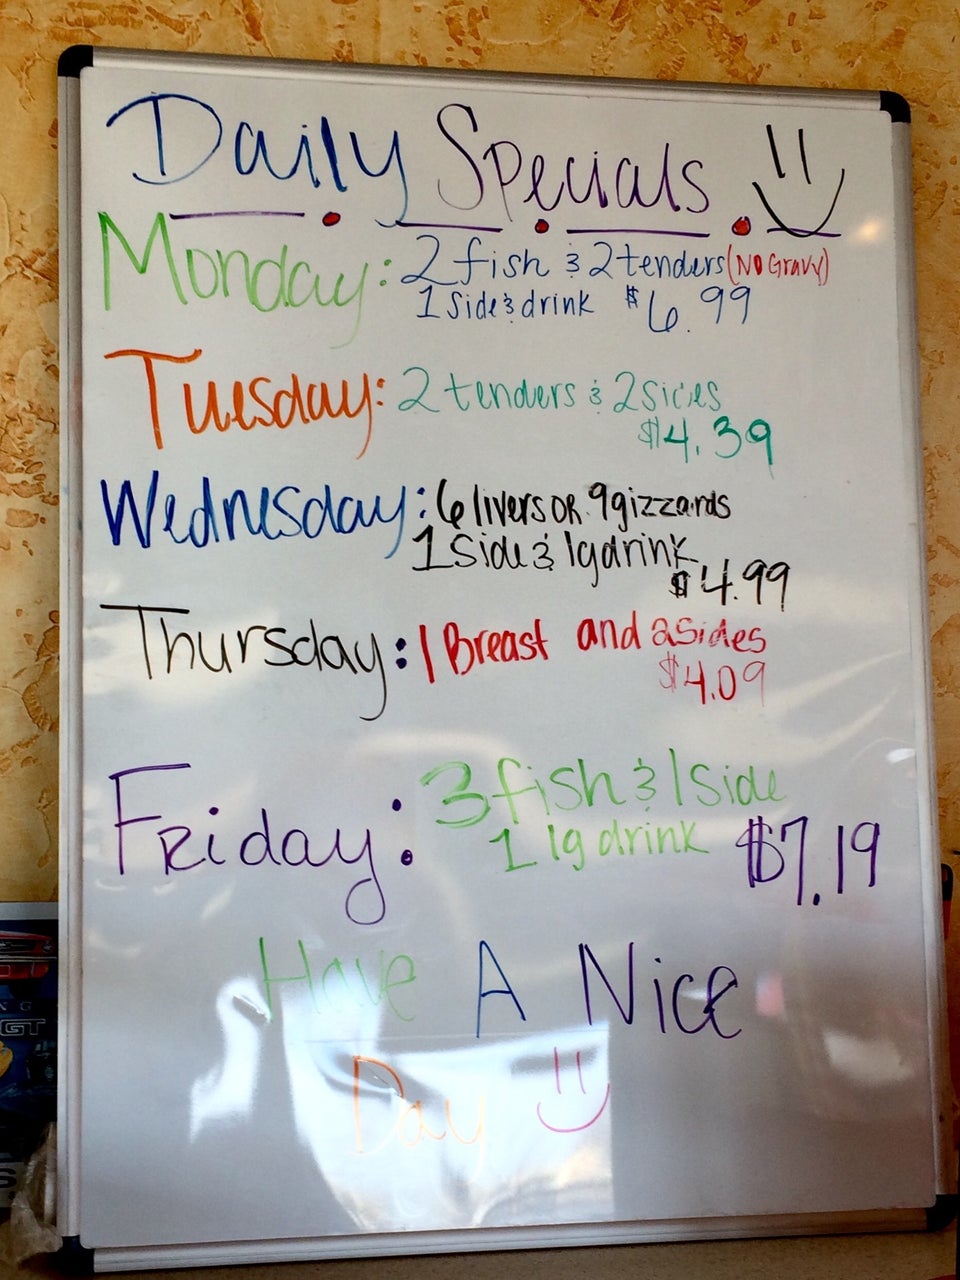 Daily Specials
Monday: 2 fish & 2 tenders (No Gravy)
1 Side & drink $6.99
Tuesday: 2 tenders & 2 sides
$4.39
Wednesday: 6 livers OR 9 gizzards
1 Side & 1g drink
$4.99
Thursday: 1 Breast and 2 sides
$4.09
Friday: 3 fish & 1 side
1 lg drink $7.19
Have A Nice
Day
GT